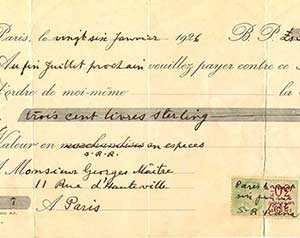 Paris, le vingt six Janvier 1926 B. P.
Au fin Juillet prochain veuillez payer contre ce
l'ordre de moi-même la
trois cent livres sterling
Valeur en marchandises en espèces
S.R.R.
A Monsieur Georges Maître
11 Rue d'Hauteville
A Paris
7
Paris
six